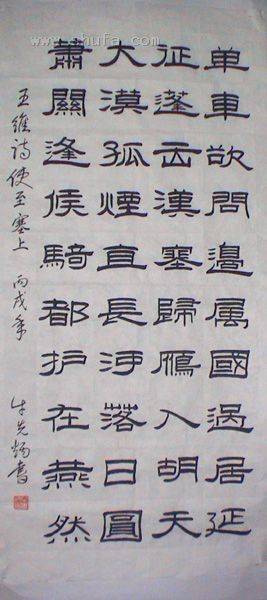 单車欲問邊属國過居延
征蓬出漢塞歸鴈入胡天
大漠孤煙直長河落日圓
蕭關逢候騎都护在燕然
王維詩使至塞上 丙戌年 牛先 書
www.shufa.com